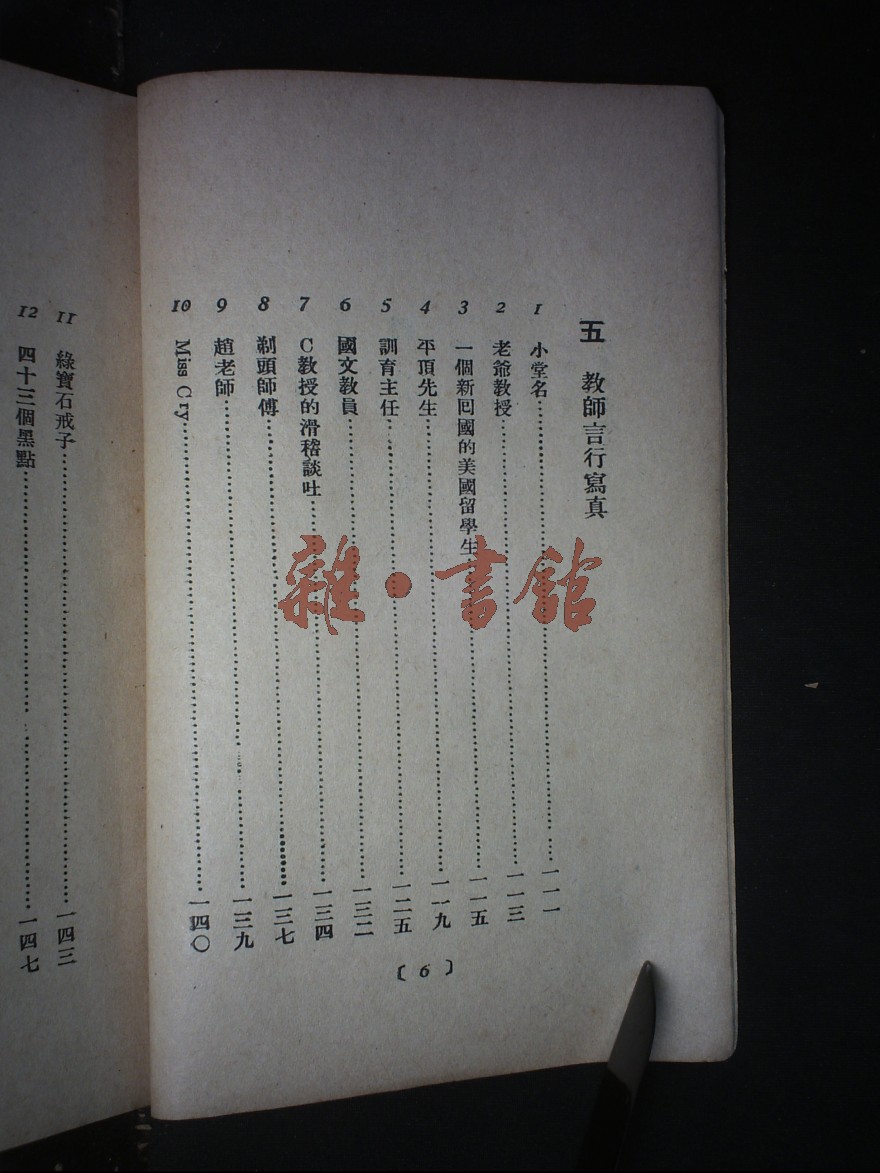 五 教師言行寫真
1 小堂名……一一一
2 老爺教授……一一三
3 一個新回國的美國留學生……一一五
4 平頂先生……一一九
5 訓育主任……一二五
6 國文教員……一三二
7 C教授的滑稽談吐……一三四
8 剃頭師傅……一三七
9 趙老師……一三九
10 Miss Cry……一四〇
〔6〕
11 綠寶石戒子……一四三
12 四十三個黑點……一四七
雜·書館